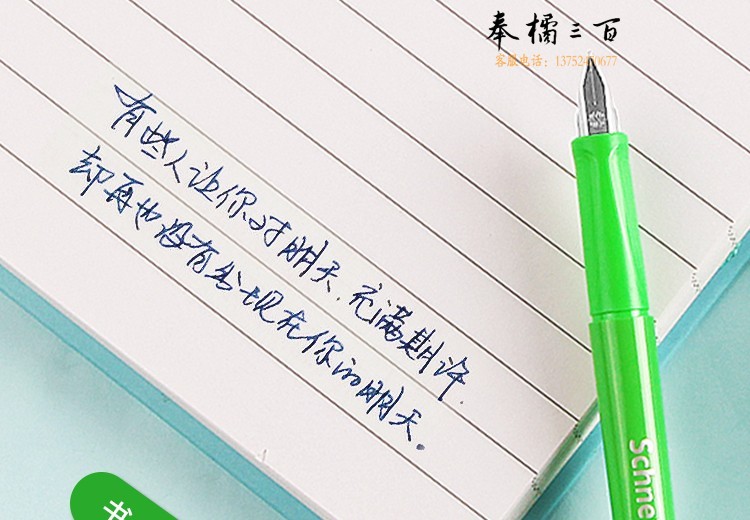 奉橘三百
客服电话：13752470677
有些人让你对明天.充满期许.
却再也没有出现在你的明天.
Schne
书